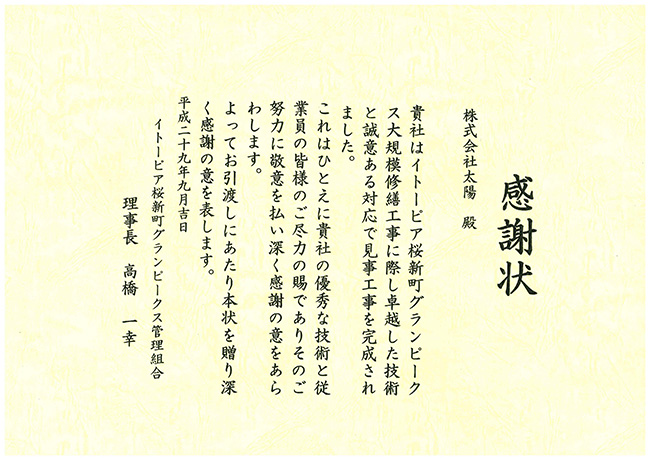 感謝状
株式会社太陽 殿
貴社はイトーピア桜新町グランピーク
ス大規模修繕工事に際し卓越した技術
と誠意ある対応で見事工事を完成され
ました。
これはひとえに貴社の優秀な技術と従
業員の皆様のご尽力の賜でありそのご
努力に敬意を払い深く感謝の意をあら
わします。
よってお引渡しにあたり本状を贈り深
く感謝の意を表します。
平成二十九年九月吉日
イトーピア桜新町グランピークス管理組合
理事長 高橋 一幸